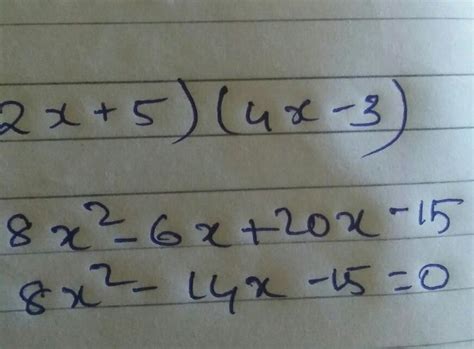 2x+5)(4x-3)
8x²-6x+20x-15
8x²-14x-15=0